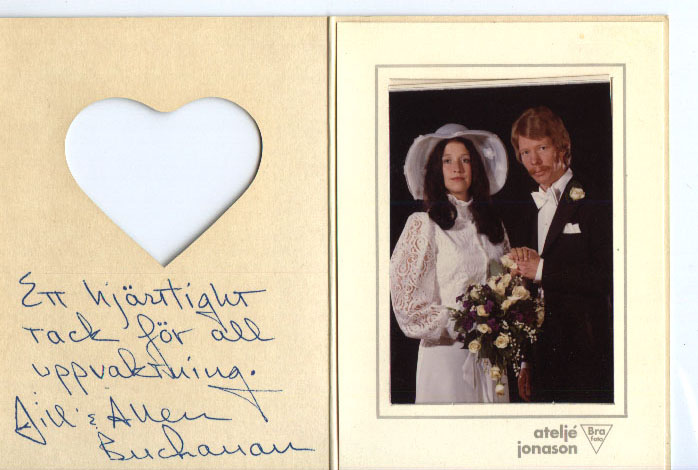 Ett hjärtlight
tack för all
uppvaktning.
Jill & Allen
Buchanan
ateljé
jonason
Bra
foto